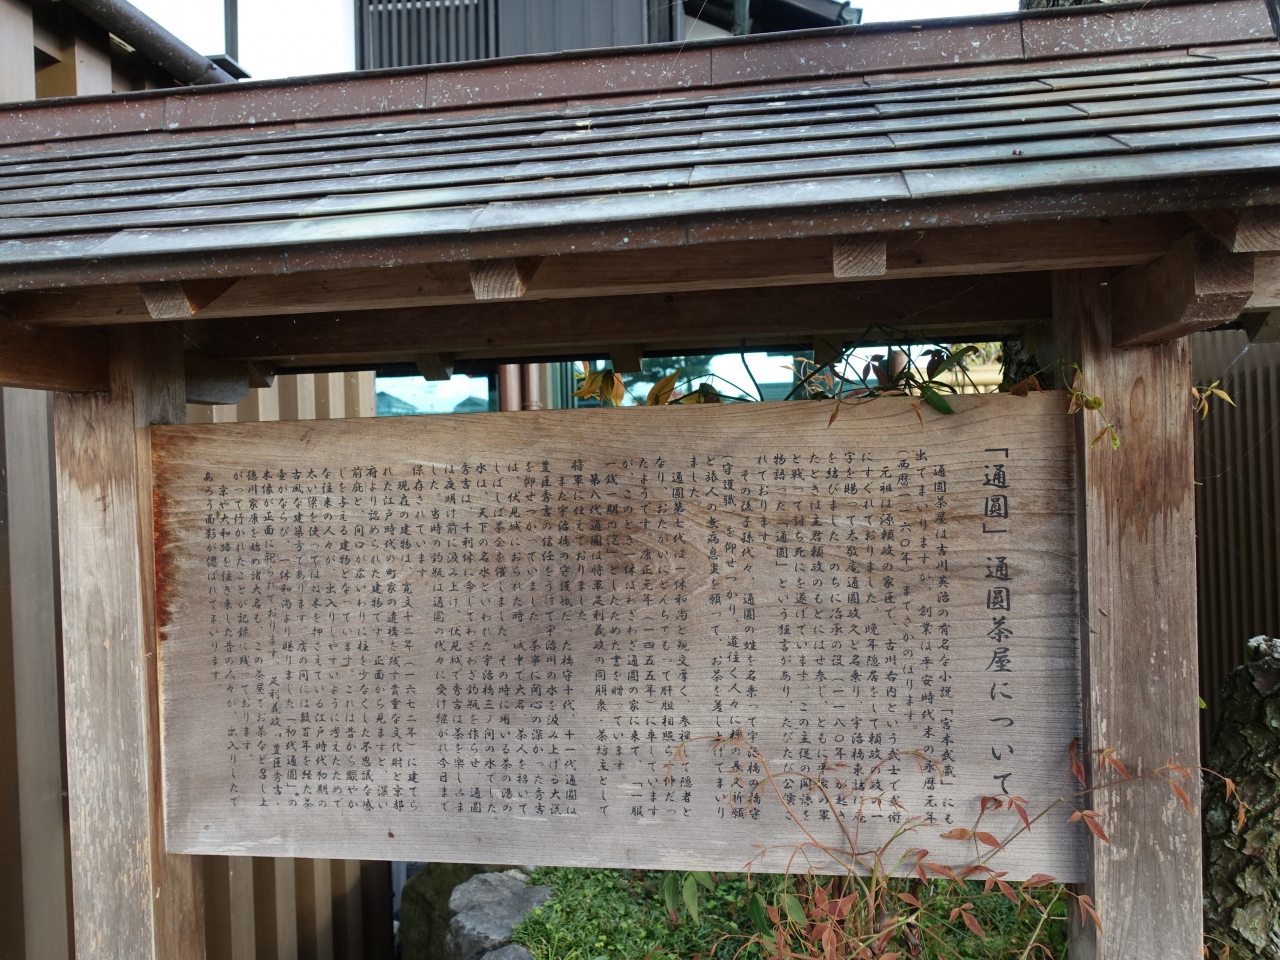 「通圓」通圓茶屋について
通圓茶屋は吉川英治の有名な小説「宮本武蔵」にも
出てまいりますが、創業は平安時代末の永暦元年
(西暦一一六〇年)までさかのぼります。
元祖は源頼政の家臣で、古川右内という武士で武術
にすぐれておりました。晩年隠居をして頼政の政の一
字を賜って太敬庵通圓政久と名乗り、宇治橋東詰に庵
を結びました。のちに治承の役(一一八〇年)が起き
たときは主君頼政のもとにはせ参じ、ともに平家の軍
と戦って討ち死にを遂げています。この主従の関係を
物語った「通圓」という狂言があり、たびたび公演さ
れております。
その後子孫代々、通圓の姓を名乗って宇治橋の橋守
(守護職)を仰せつかり、道往く人々に橋の長久祈願
と旅人の無病息災を願って、お茶を差し上げてまいり
ました。
通圓第七代は一休和尚と親交厚く、参禅して隠者と
なり、おたがいにとんちでもって肝胆相照らす仲だっ
たようです。康正元年(一四五五年)に卒しています
が、このとき一休はわざわざ通圓の家に来て、「一服
一銭一期の活」としたためた書を贈っています。
第八代通圓は将軍足利義政の同朋衆・茶坊主として
将軍に仕えておりました。
また宇治橋の守護職だった橋守十代、十一代通圓は
豊臣秀吉の信任をうけて宇治川の水を汲み上げる大役
を仰せつかっていました。茶事に関心の深かった秀吉
は、伏見城におられた時、城中で大名、茶人を招いて
しばしば茶会を催しました。その時に用いる茶の湯の
水は、天下の名水といわれた宇治橋三ノ間の水でした。
秀吉は、千利休に命じてわざわざ釣瓶を作らせ、通圓
は夜明け前に汲み上げ、伏見城で秀吉は茶を楽しみま
した。当時の釣瓶は通圓の代々に受け継がれ今日まで
保存されています。
現在の建物は、寛文十二年(一六七二年)に建てら
れた江戸時代の町家の遺構を残す貴重な文化財と京都
府より認められた建物です。正面から見ますと、深い
前庇と、間口が広いわりに柱を少なくした不思議な感
じを与える建物となっています。これは昔から賑やか
な往来の人々が、出入りしやすいように考えたためで
太い梁を使ってはね木を押さえている江戸時代初期の
古風な建築方であります。店の間には数百年を経た茶
壺がならび、一休和尚より賜りました「初代通圓」の
木像が正面に祀られております。足利義政、豊臣秀吉・
徳川家康を始め諸大名も、この茶屋でお茶など召し上
がって行かれたことが記録に残っております。
京や大和路を往き来した昔の人々が、出入りしたで
あろう面影が偲ばれてまいります。